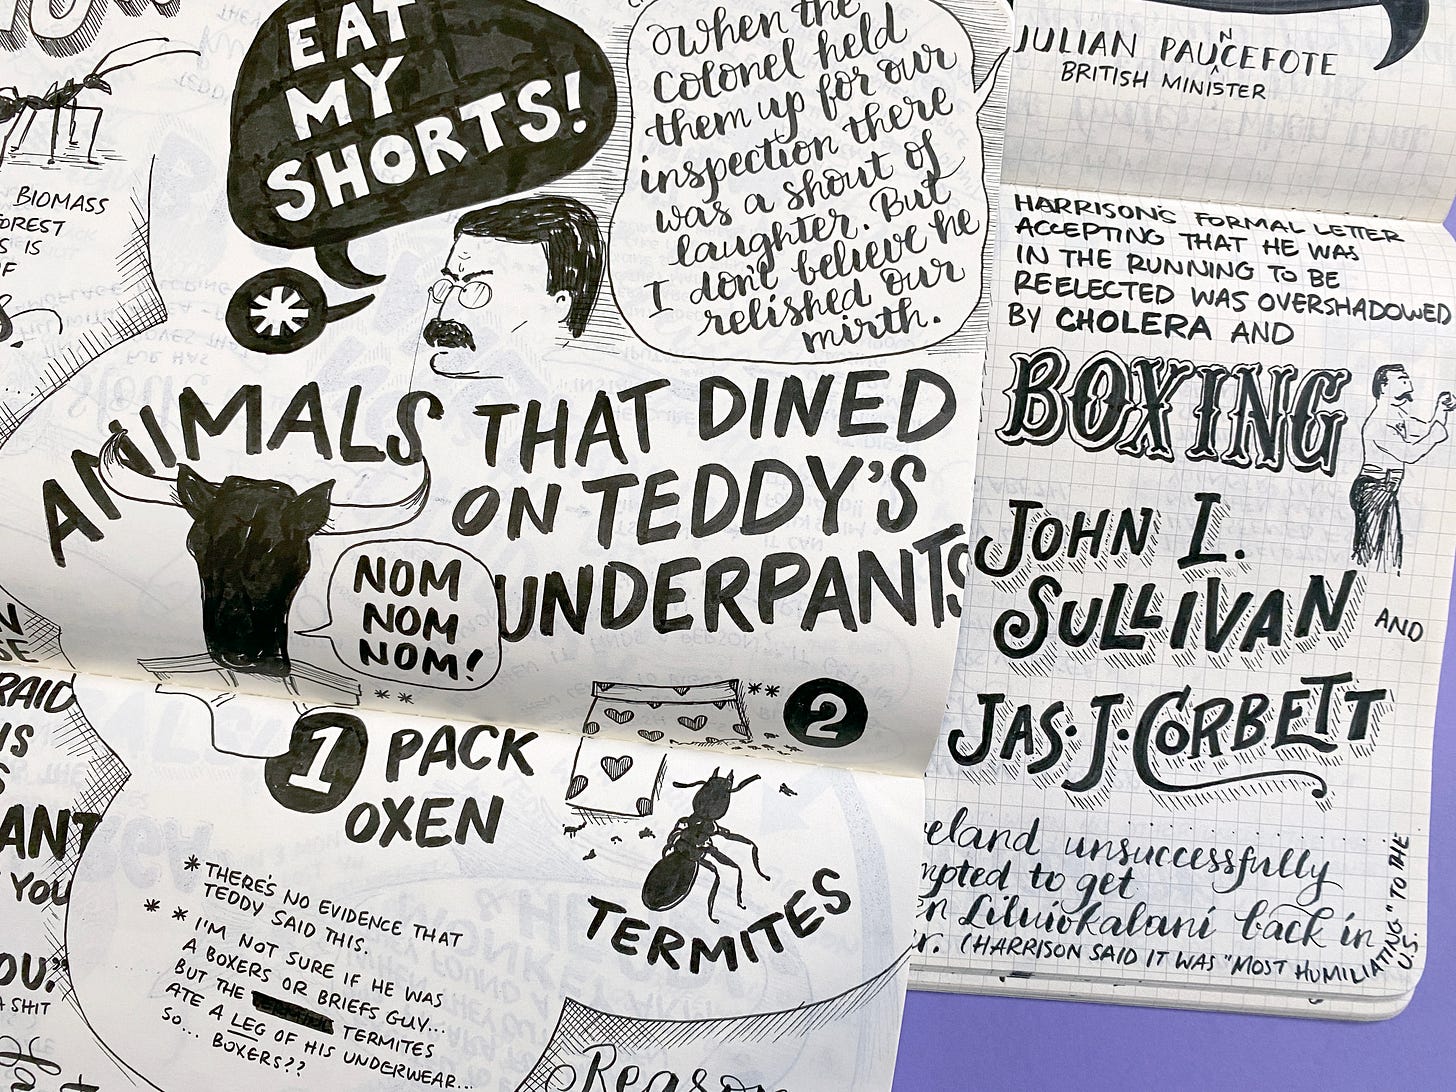 EAT
MY
SHORTS!
When the
Colonel held
them up for our
inspection there
was a shout of
laughter. But
I don't believe he
relished our
mirth.
BIOMASS
IS
ANIMALS THAT DINED
ON TEDDY'S
UNDERPANTS
NOM
NOM
NOM!
**
1 PACK
OXEN
** 2
TERMITES
*THERE'S NO EVIDENCE THAT
TEDDY SAID THIS.
** I'M NOT SURE IF HE WAS
A BOXERS OR BRIEFS GUY...
BUT THE TERMITES
ATE A LEG OF HIS UNDERWEAR...
SO... BOXERS??
IS
YOU
A SHIT
Reason
JULIAN PAUNCEFOTE
BRITISH MINISTER
HARRISON'S FORMAL LETTER
ACCEPTING THAT HE WAS
IN THE RUNNING TO BE
REELECTED WAS OVERSHADOWED
BY CHOLERA AND
BOXING
JOHN L.
SULLIVAN AND
JAS. J. CORBETT
eland unsuccessfully
mpted to get
en Liluiokalani back in
r. (HARRISON SAID IT WAS "MOST HUMILIATING" TO THE
U.S.